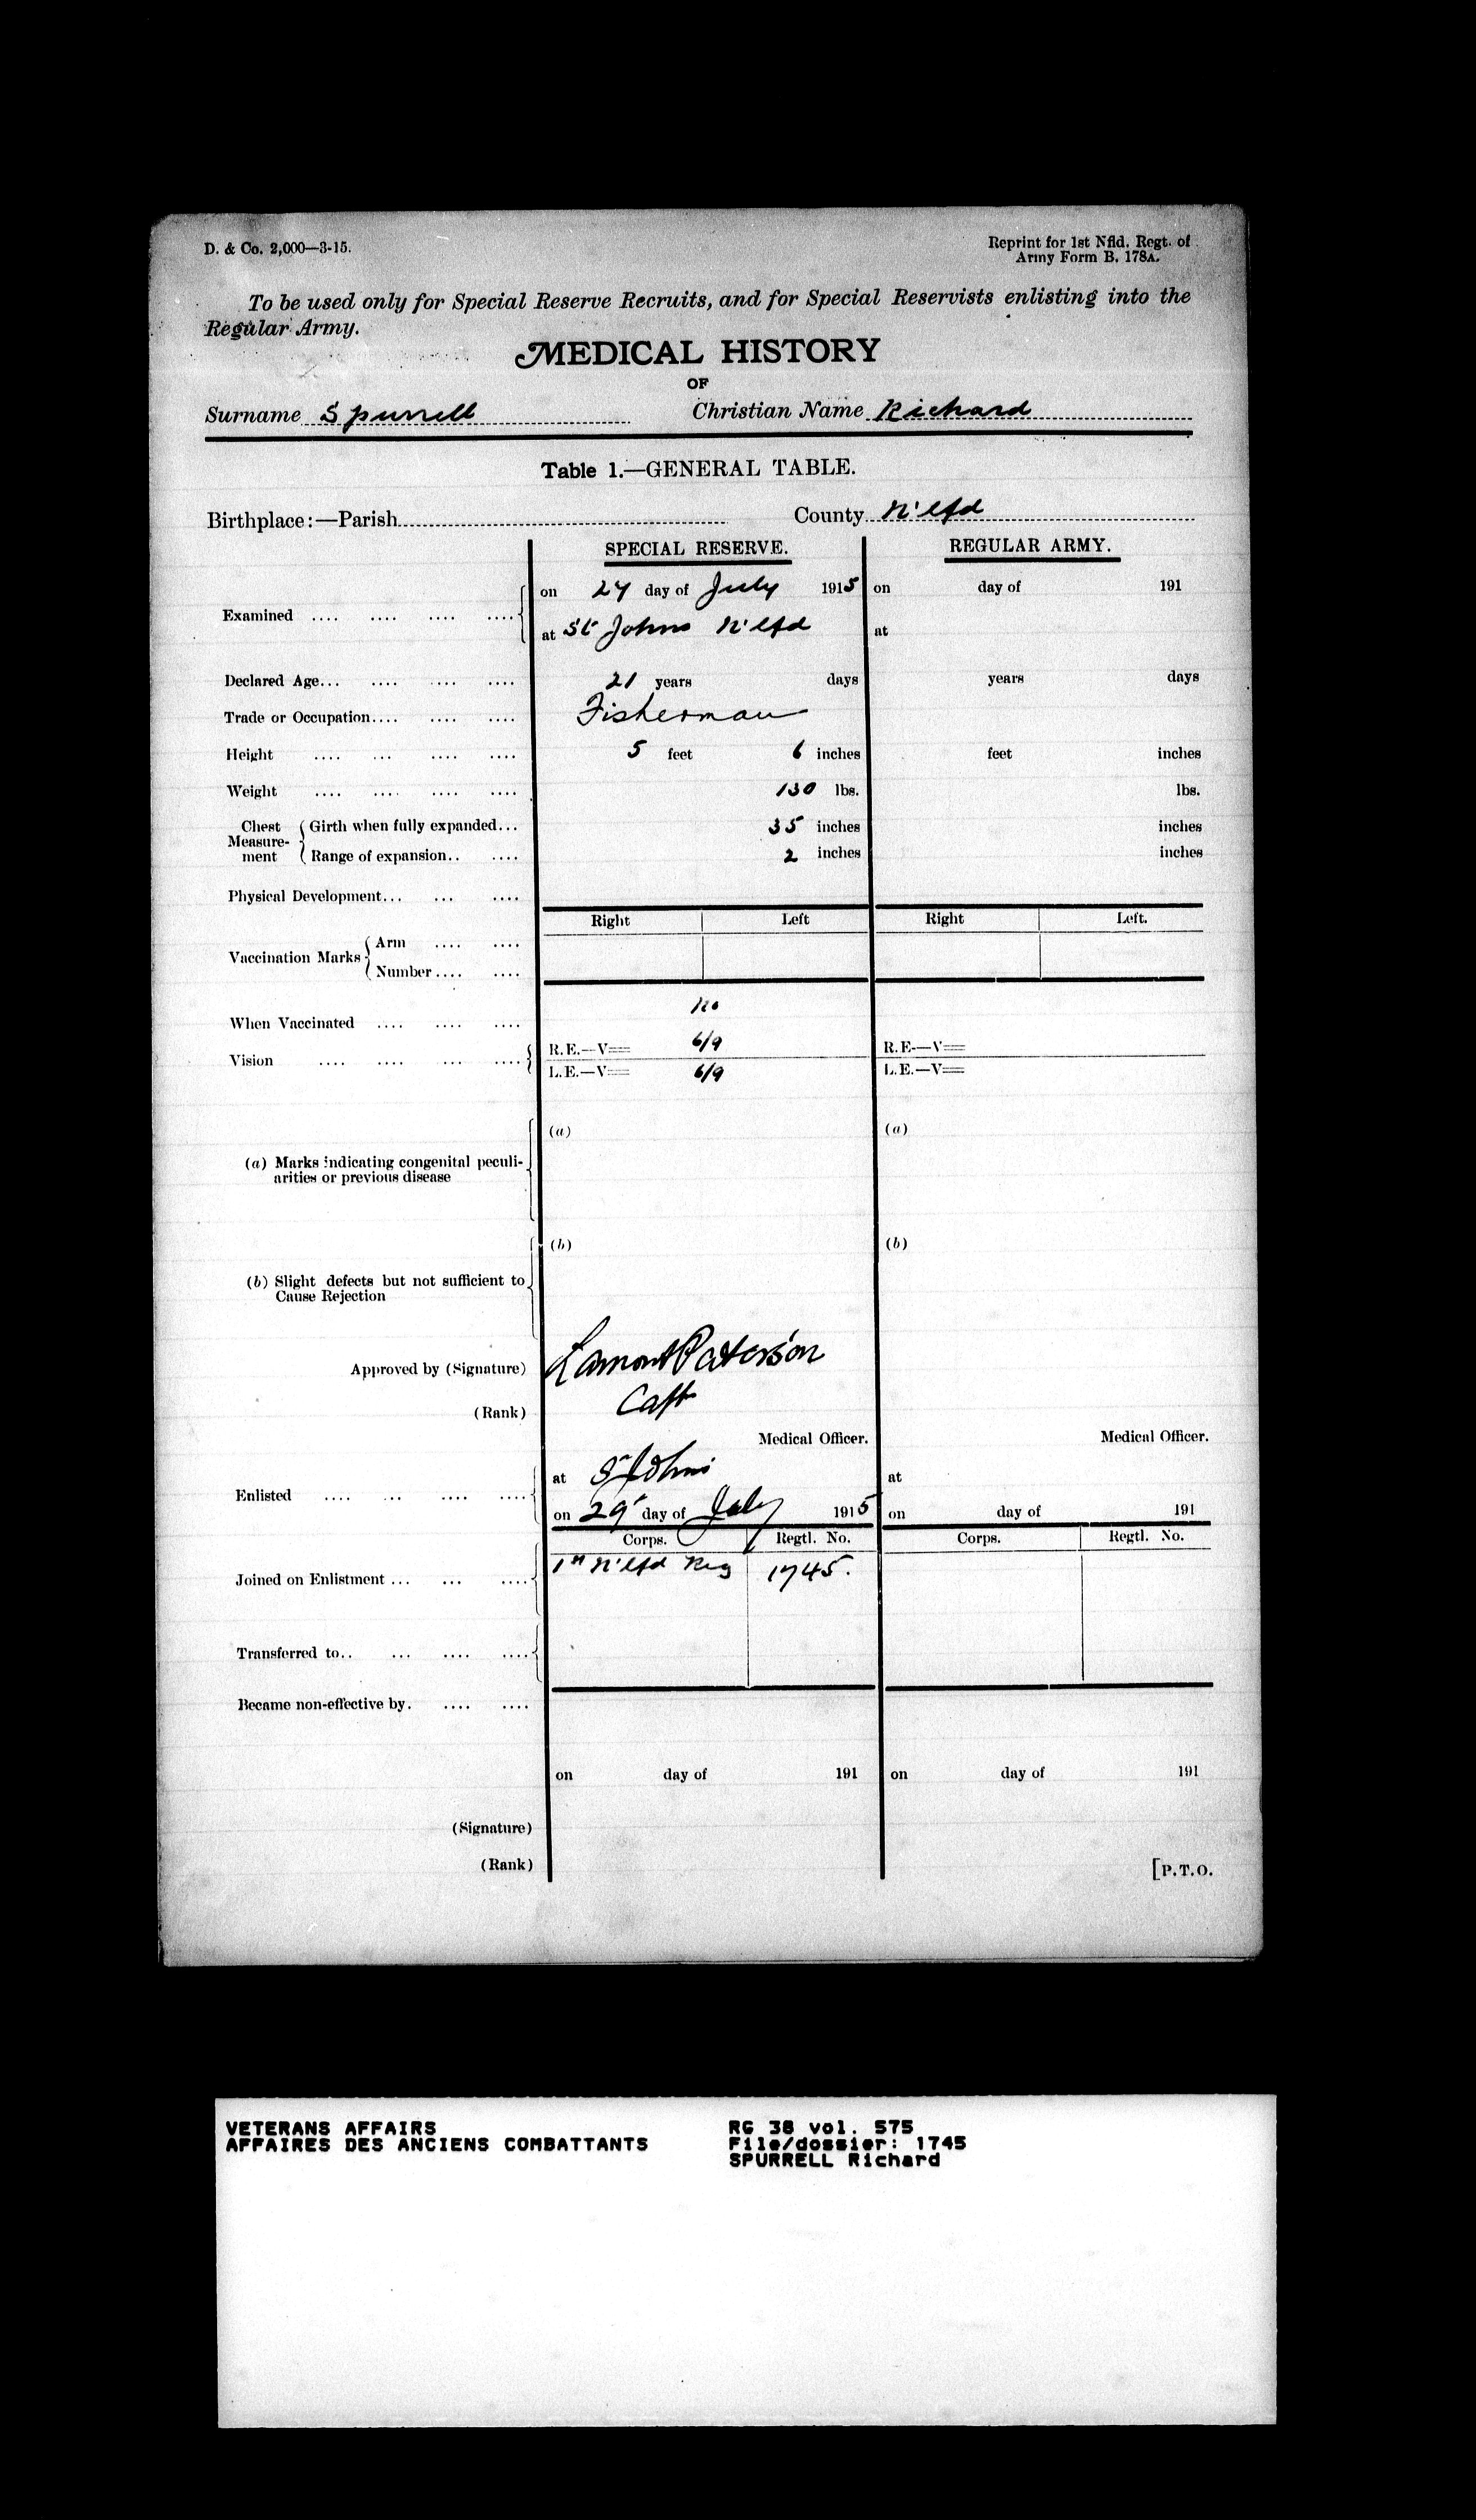 D. & Co. 2,000—3-15.
Reprint for 1st Nfld. Regt. of
Army Form B. 178A.
To be used only for Special Reserve Recruits, and for Special Reservists enlisting into the
Regular Army.
MEDICAL HISTORY
OF
Surname Spurrell Christian Name Richard
Table 1.—GENERAL TABLE.
Birthplace:—Parish County N'lfd
SPECIAL RESERVE. REGULAR ARMY.
Examined .... .... .... .... on 27 day of July 1915 on day of 191
at St Johns N'lfd at
Declared Age... .... .... .... 21 years days years days
Trade or Occupation.... .... .... Fisherman
Height .... ... .... .... 5 feet 6 inches feet inches
Weight .... .... .... .... 130 lbs. lbs.
Chest Measurement Girth when fully expanded... 35 inches inches
Range of expansion.. .... 2 inches inches
Physical Development... ... ....
Right Left Right Left.
Vaccination Marks Arm .... ....
Number .... ....
When Vaccinated .... .... .... no
Vision .... .... ... .... R.E.—V= 6/9 R.E.—V=
L.E.—V= 6/9 L.E.—V=
(a) (a)
(a) Marks indicating congenital peculi-
arities or previous disease
(b) (b)
(b) Slight defects but not sufficient to
Cause Rejection
Approved by (Signature) Lamont Paterson
(Rank) Capt
Medical Officer. Medical Officer.
Enlisted .... ... .... .... at St Johns at
on 29 day of July 1915 on day of 191
Corps. Regtl. No. Corps. Regtl. No.
Joined on Enlistment ... ... .... 1st N'lfd Reg 1745.
Transferred to.. ... .... ....
Became non-effective by. .... ....
on day of 191 on day of 191
(Signature)
(Rank)
[P.T.O.
VETERANS AFFAIRS RG 38 vol. 575
AFFAIRES DES ANCIENS COMBATTANTS File/dossier: 1745
SPURRELL Richard